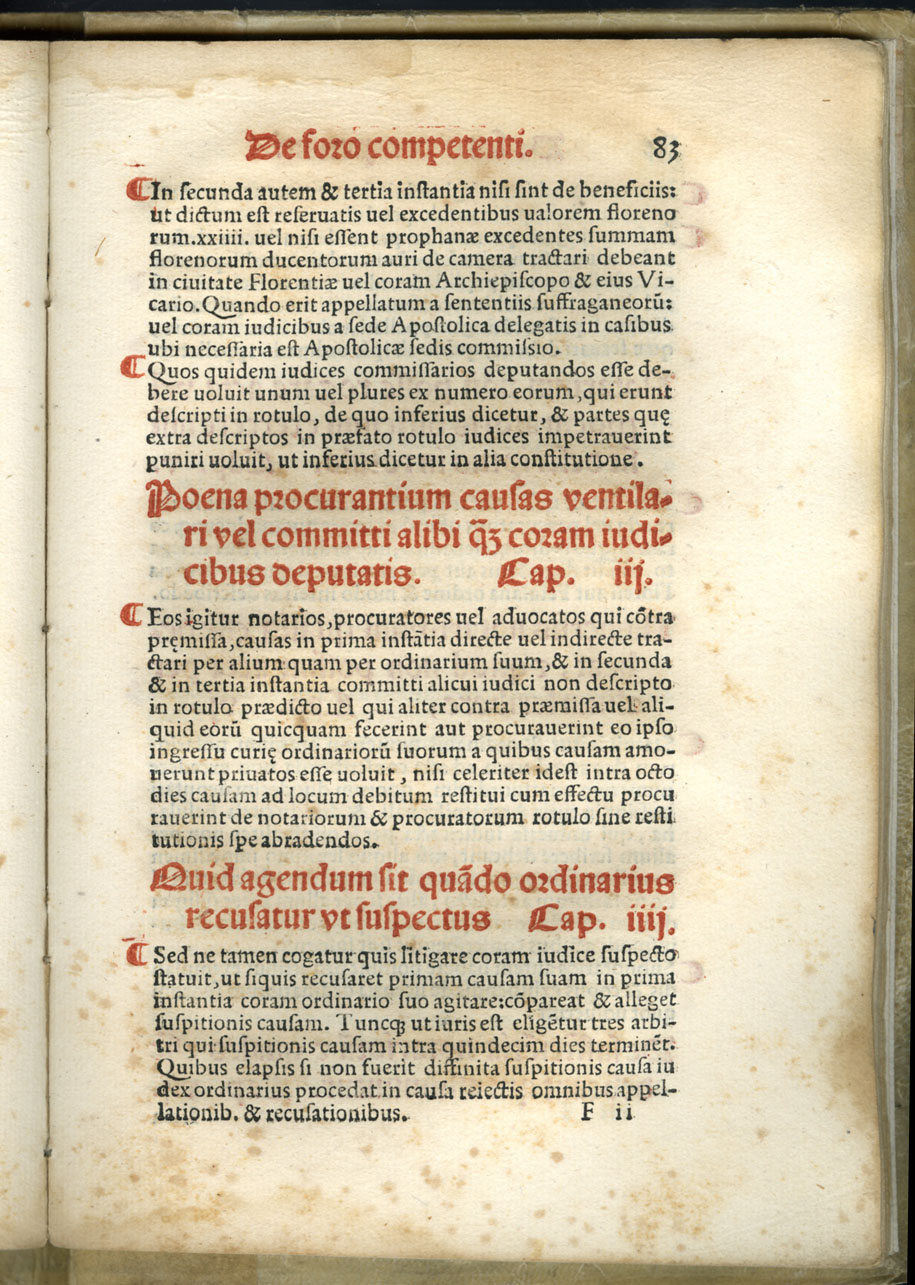 De foro competenti. 83
¶In secunda autem & tertia instantia nisi sint de beneficiis:
ut dictum est reseruatis uel excedentibus ualorem floreno
rum.xxiiii. uel nisi essent prophanæ excedentes summam
florenorum ducentorum auri de camera tractari debeant
in ciuitate Florentiæ uel coram Archiepiscopo & eius Vi-
cario. Quando erit appellatum a sententiis suffraganeorū:
uel coram iudicibus a sede Apostolica delegatis in casibus
ubi necessaria est Apostolicæ sedis commissio.
¶Quos quidem iudices commissarios deputandos esse de-
bere uoluit unum uel plures ex numero eorum, qui erunt
descripti in rotulo, de quo inferius dicetur, & partes quę
extra descriptos in præfato rotulo iudices impetrauerint
puniri uoluit, ut inferius dicetur in alia constitutione.
Poena procurantium causas ventila-
ri vel committi alibi q̃ꝫ coram iudi-
cibus deputatis. Cap. iij.
¶Eos igitur notarios, procuratores uel aduocatos qui cōtra
pręmissa, causas in prima instātia directe uel indirecte tra-
ctari per alium quam per ordinarium suum, & in secunda
& in tertia instantia committi alicui iudici non descripto
in rotulo prædicto uel qui aliter contra præmissa uel ali-
quid eorū quicquam fecerint aut procurauerint eo ipso
ingressu curię ordinariorū suorum a quibus causam amo-
uerunt priuatos esse uoluit, nisi celeriter idest intra octo
dies causam ad locum debitum restitui cum effectu procu
rauerint de notariorum & procuratorum rotulo sine resti
tutionis spe abradendos.
Quid agendum sit quādo ordinarius
recusatur vt suspectus Cap. iiij.
¶Sed ne tamen cogatur quis litigare coram iudice suspecto
statuit, ut siquis recusaret primam causam suam in prima
instantia coram ordinario suo agitare: cōpareat & alleget
suspitionis causam. Tuncqꝫ ut iuris est eligētur tres arbi-
tri qui suspitionis causam intra quindecim dies terminēt.
Quibus elapsis si non fuerit diffinita suspitionis causa iu
dex ordinarius procedat in causa reiectis omnibus appel-
lationib. & recusationibus. F ii